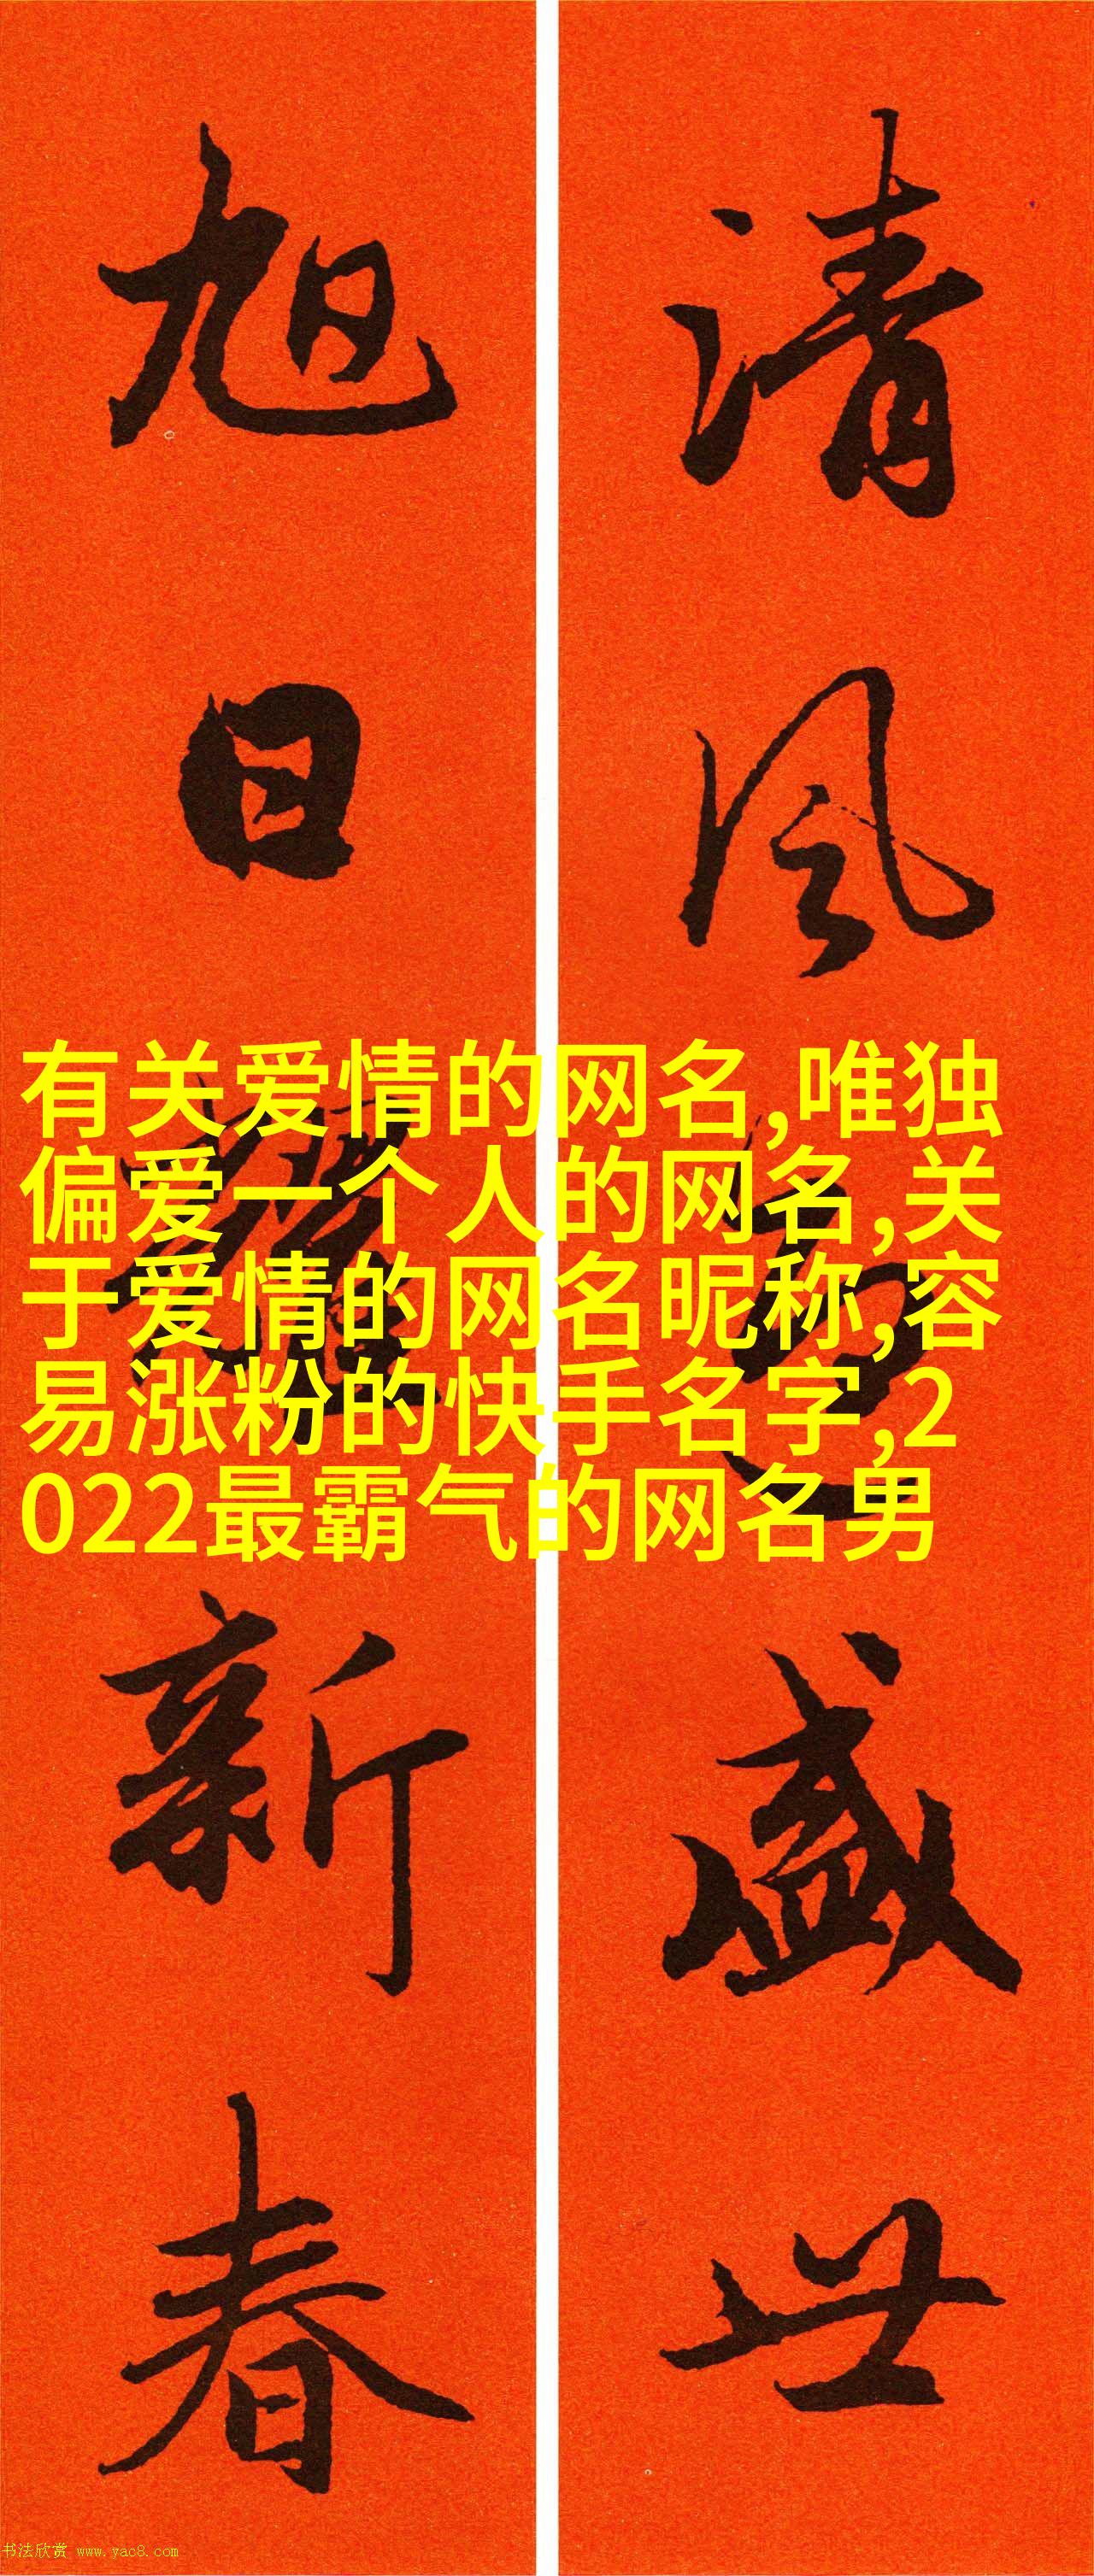 清风盛世
旭日耀新春
有关爱情的网名,唯独
偏爱一个人的网名,关
于爱情的网名昵称,容
易涨粉的快手名字,2
022最霸气的网名男
书法欣赏 www.yac8.com